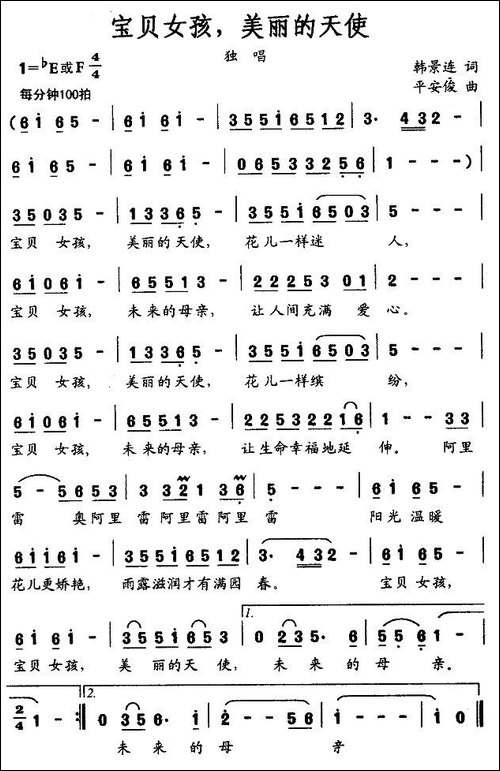 宝贝女孩，美丽的天使
独 唱
1=♭E或F 4/4
韩景连 词
每分钟100拍
平安俊 曲
( 6 i 6 5 - | 6 i 6 i - | 3 5 5 i 6 5 1 2 | 3· 4 3 2 - |
6 i 6 5 - | 6 i 6 i - | 0 6 5 3 3 2 5 6 | 1 - - - )
3 5 0 3 5 - | 1 3 3 6 5 - | 3 5 5 i 6 5 0 3 | 5 - - - |
宝贝 女孩， 美丽的天使， 花儿一样迷 人，
6 i 0 6 i - | 6 5 5 1 3 - | 2 2 2 5 3 0 1 | 2 - - - |
宝贝 女孩， 未来的母亲， 让人间充满 爱 心。
3 5 0 3 5 - | 1 3 3 6 5 - | 3 5 5 i 6 5 0 3 | 5 - - - |
宝贝 女孩， 美丽的天使， 花儿一样缤 纷，
6 i 0 6 i - | 6 5 5 1 3 - | 2 2 5 3 2 2 1 6 | 1 - - 3 3 |
宝贝 女孩， 未来的母亲， 让生命幸福地延 伸。 阿里
5 - 5 6 5 3 | 3 3 3 2 1 3 3 6 | 5 - - - | 6 i 6 5 - |
雷 奥阿里 雷阿里雷阿里 雷 阳光温暖
6 i i 6 i - | 3 5 5 i 6 5 1 2 | 3· 4 3 2 - | 6 i 6 5 - |
花儿更娇艳， 雨露滋润才有满园 春。 宝贝女孩，
6 i 6 i - | 3 5 5 i 6 5 3 | 1. 0 2 3 5· 6 | 5 5 6 1 - |
宝贝女孩， 美 丽的天使， 未 来 的 母 亲。
2/4 1 - :| 2. 0 3 5 6· i | i 2 - - 5 6 | i - - - | i 0 ‖
未 来 的 母 亲